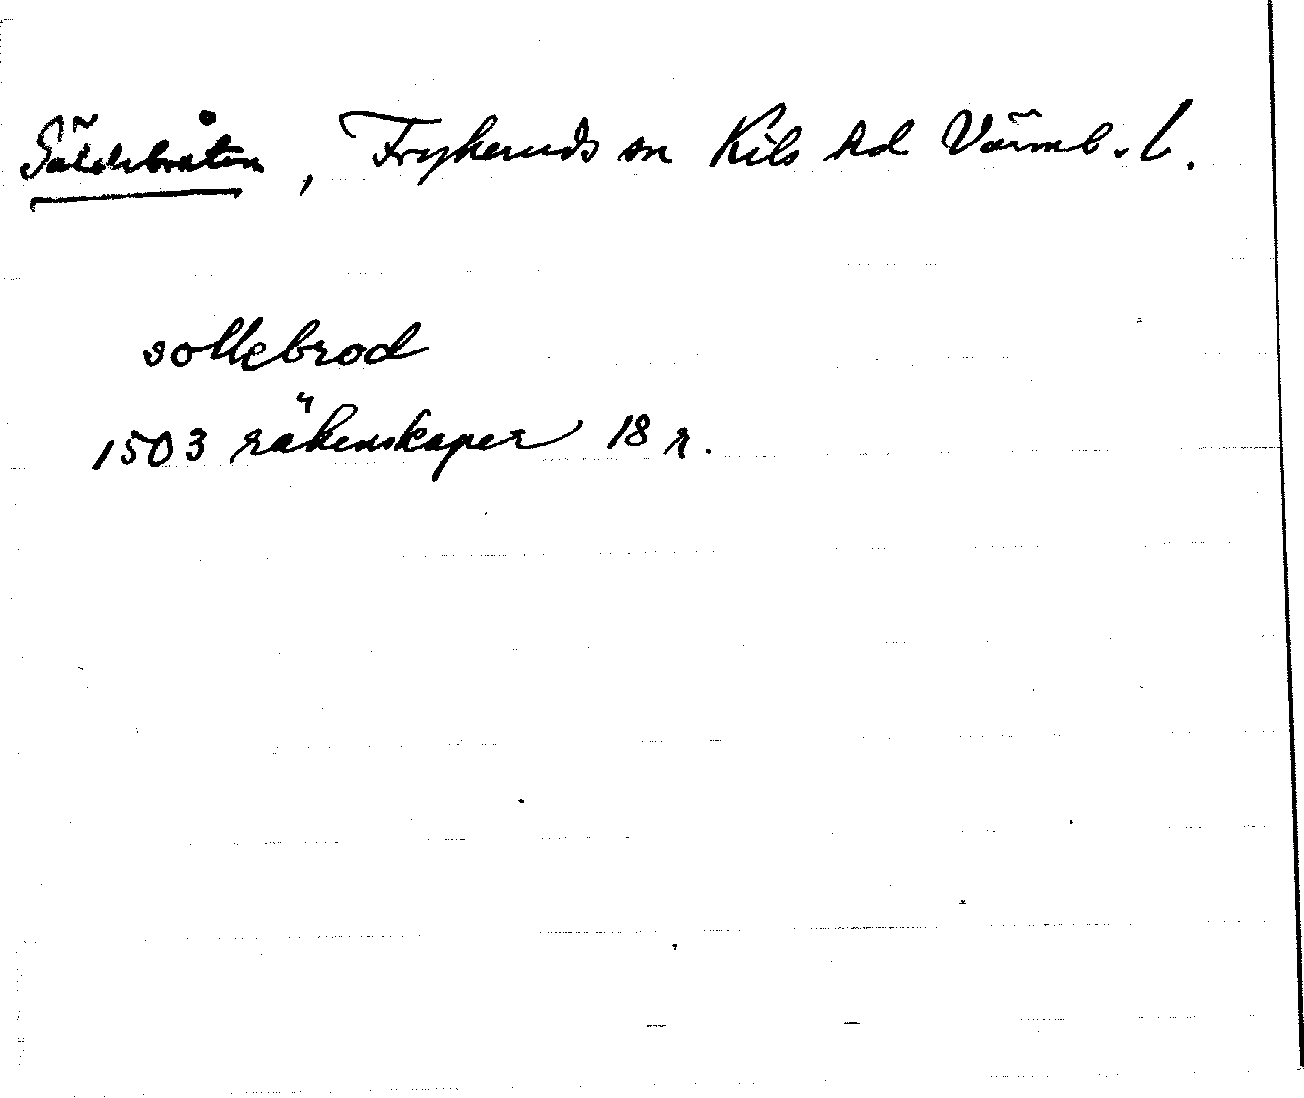 Säldebråten, Frykeruds sn Kils hd Värml. l.
sollebrod
1503 räkenskaper 18 r.